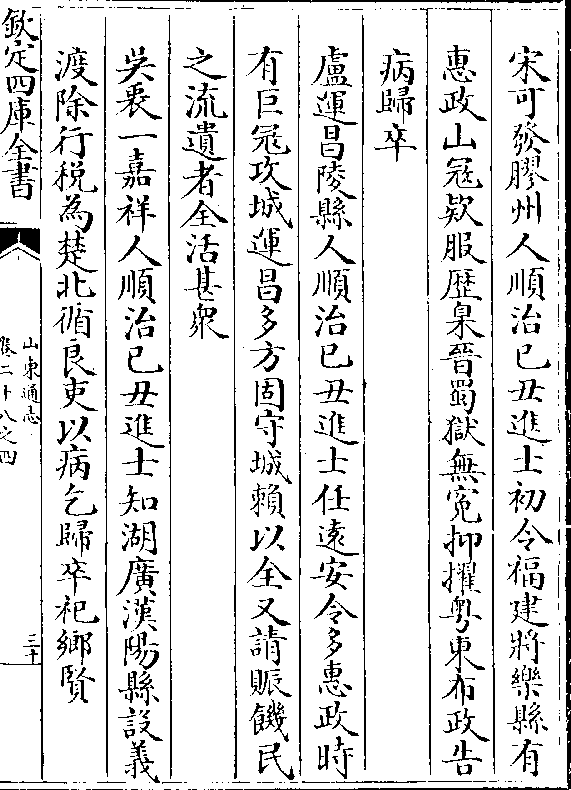 宋可發膠州人順治己丑進士初令福建將樂縣有
惠政山冦欵服歴臬晉蜀獄無寃抑擢粤東布政告
病歸卒
盧運昌陵縣人順治己丑進士任遠安令多惠政時
有巨冦攻城運昌多方固守城賴以全又請賑饑民
之流遺者全活甚衆
吳裘一嘉祥人順治己丑進士知湖廣漢陽縣設義
渡除行税為楚北循良吏以病乞歸卒祀鄉賢
欽定四庫全書
山東通志
卷二十八之四
三十